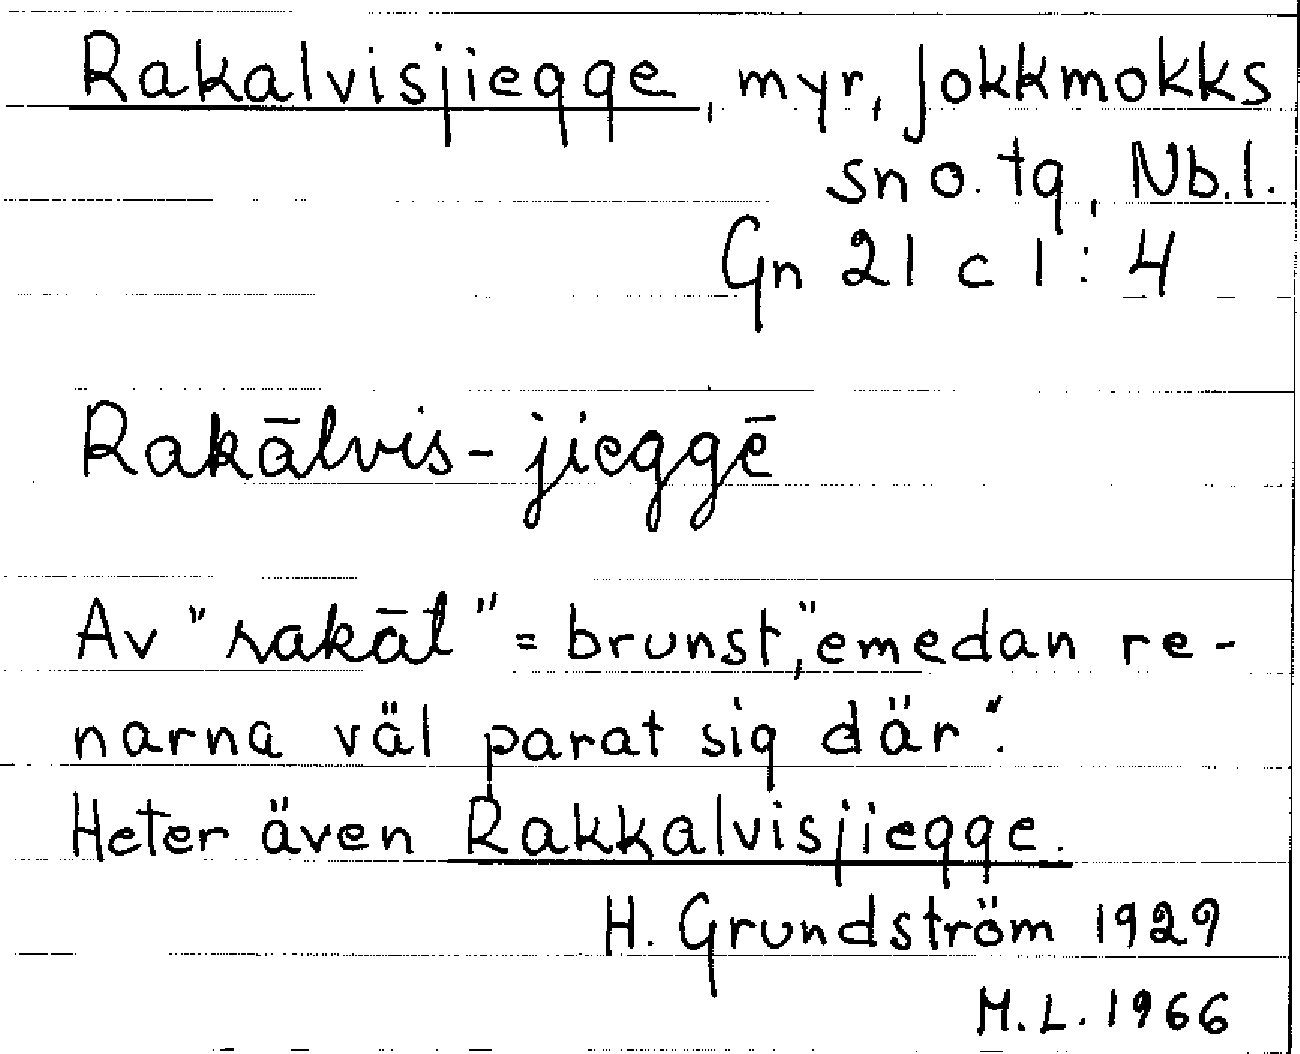 Rakalvisjiegge, myr, Jokkmokks
sn o. tg, Nb.l.
Gn 21 c 1 : 4
Rakālvis-jieggē
Av "rakāl̄" = brunst, "emedan re-
narna väl parat sig där".
Heter även Rakkalvisjiegge.
H. Grundström 1929
M.L. 1966